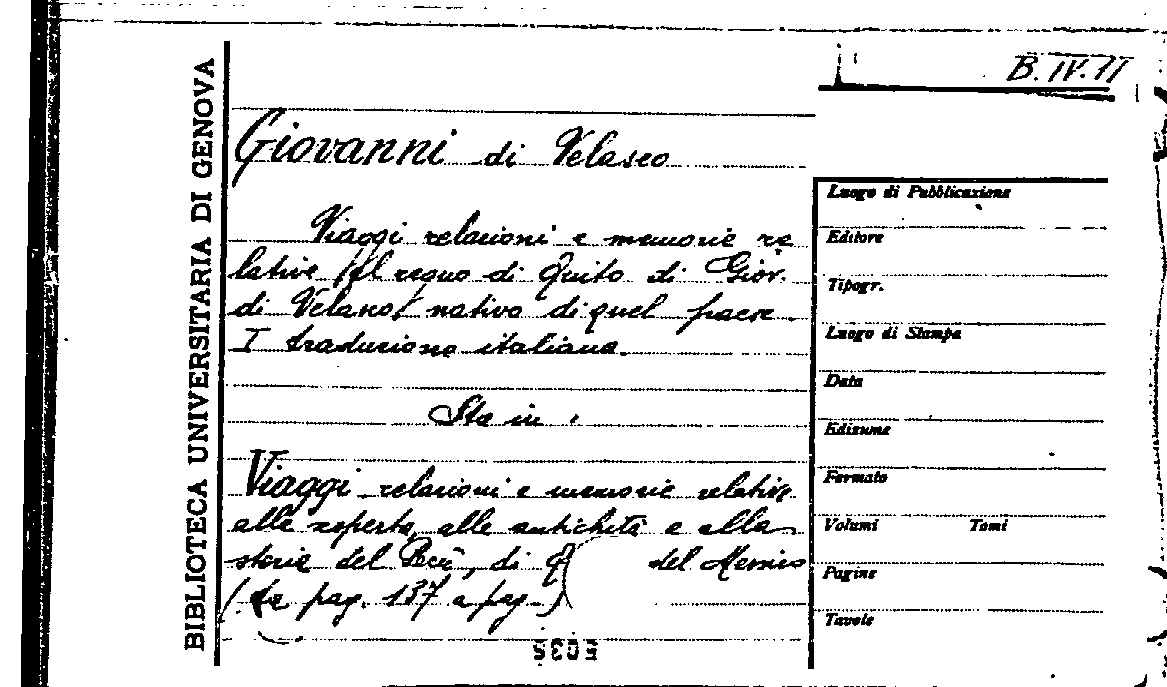 B.IV.11
BIBLIOTECA UNIVERSITARIA DI GENOVA
Giovanni di Velasco
Viaggi relazioni e memorie re
lative /Al regno di Quito di Giov.
di Velasco/ nativo di quel paese.
I traduzione italiana.
Sta in:
Viaggi relazioni e memorie relative
alle scoperte, alle antichità e alla
storie del Perù, di Q del Messico
(da pag. 137 a pag. )
Luogo di Pubblicazione
Editore
Tipogr.
Luogo di Stampa
Data
Edizione
Formato
Volumi Tomi
Pagine
Tavole